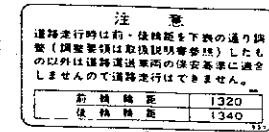 注 意
道路走行時は前・後輪距を下表の通り調
整(調整要領は取扱説明書参照)したも
の以外は道路運送車両の保安基準に適合
しませんので道路走行はできません。
前輪輪距 1320
後輪輪距 1340